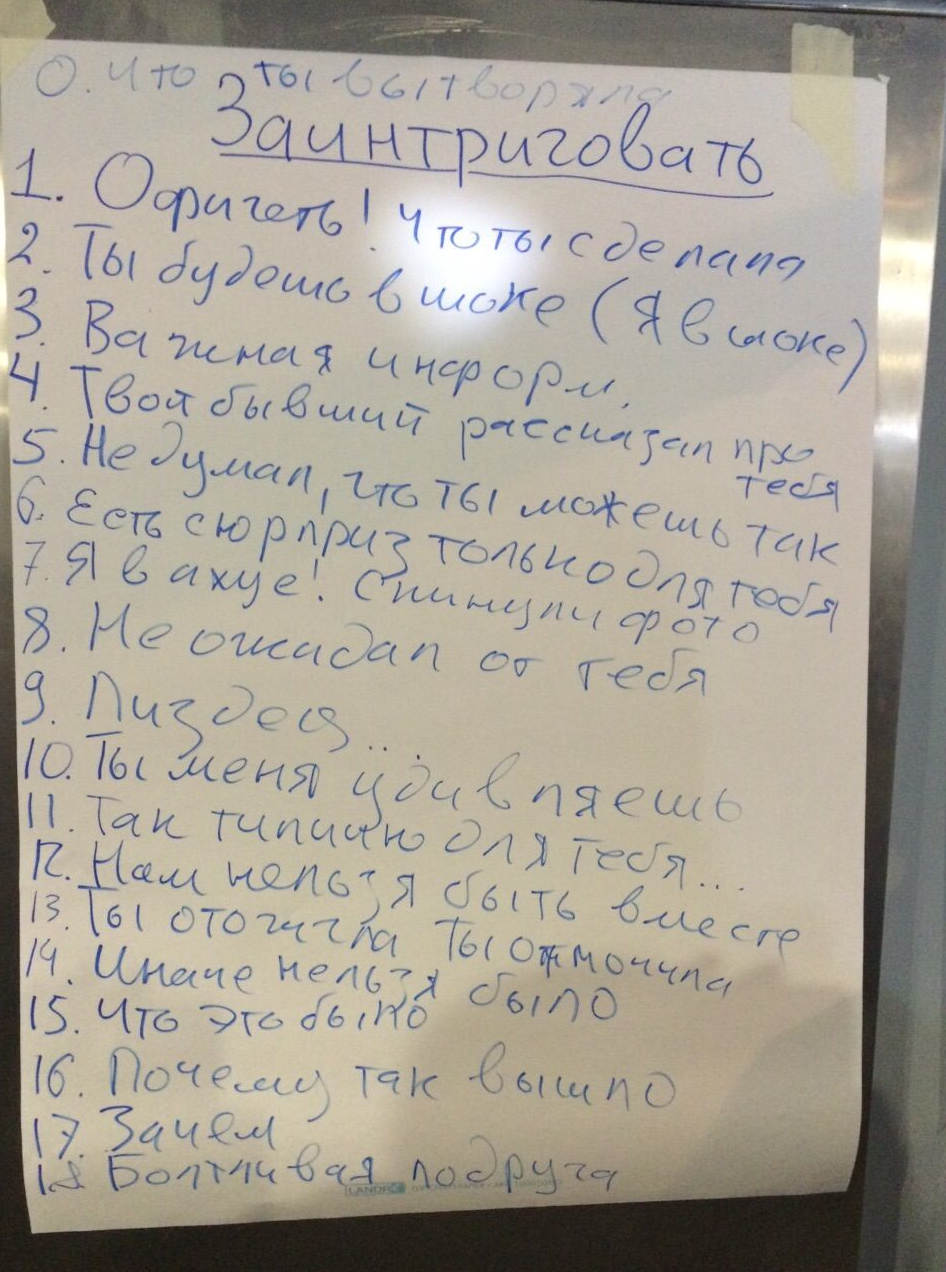 О. Что ты вытворяла
Заинтриговать
1. Офигеть! Что ты сделала
2. Ты будешь в шоке (Я в шоке)
3. Важная информ.
4. Твой бывший рассказал про
тебя
5. Не думал, что ты можешь так
6. Есть сюрприз только для тебя
7. Я в ахуе! Скинули фото
8. Не ожидал от тебя
9. Пиздец...
10. Ты меня удивляешь
11. Так типично для тебя...
12. Нам нельзя быть вместе
13. Ты отожгла Ты отмочила
14. Иначе нельзя было
15. Что это было
16. Почему так вышло
17. Зачем
18 Болтливая подруга